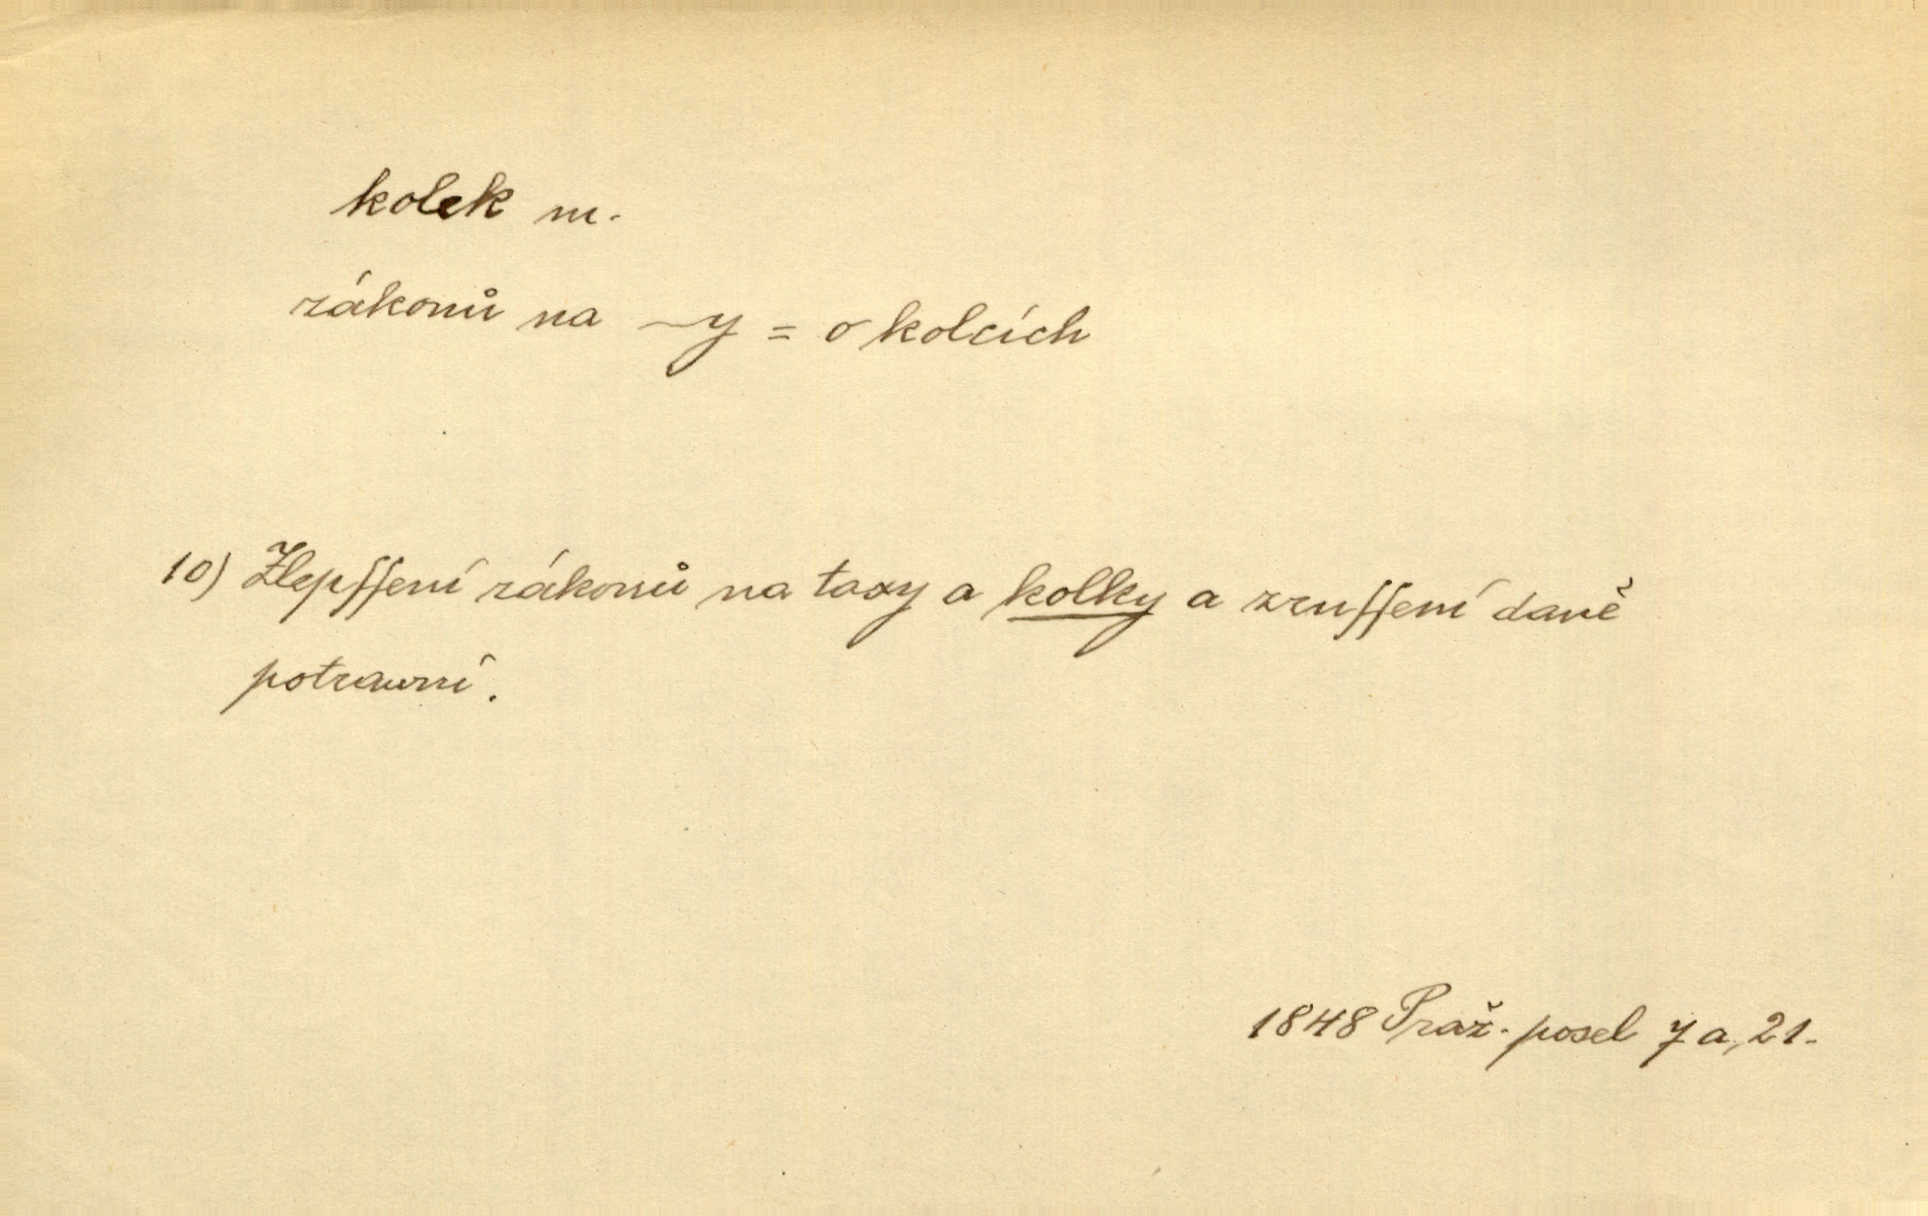 kolek m.
zákonů na ~y = o kolcích
10) Zlepſſení zákonů na taxy a kolky a zruſſení daně
potrawní.
1848 Praž. posel 7a, 21.